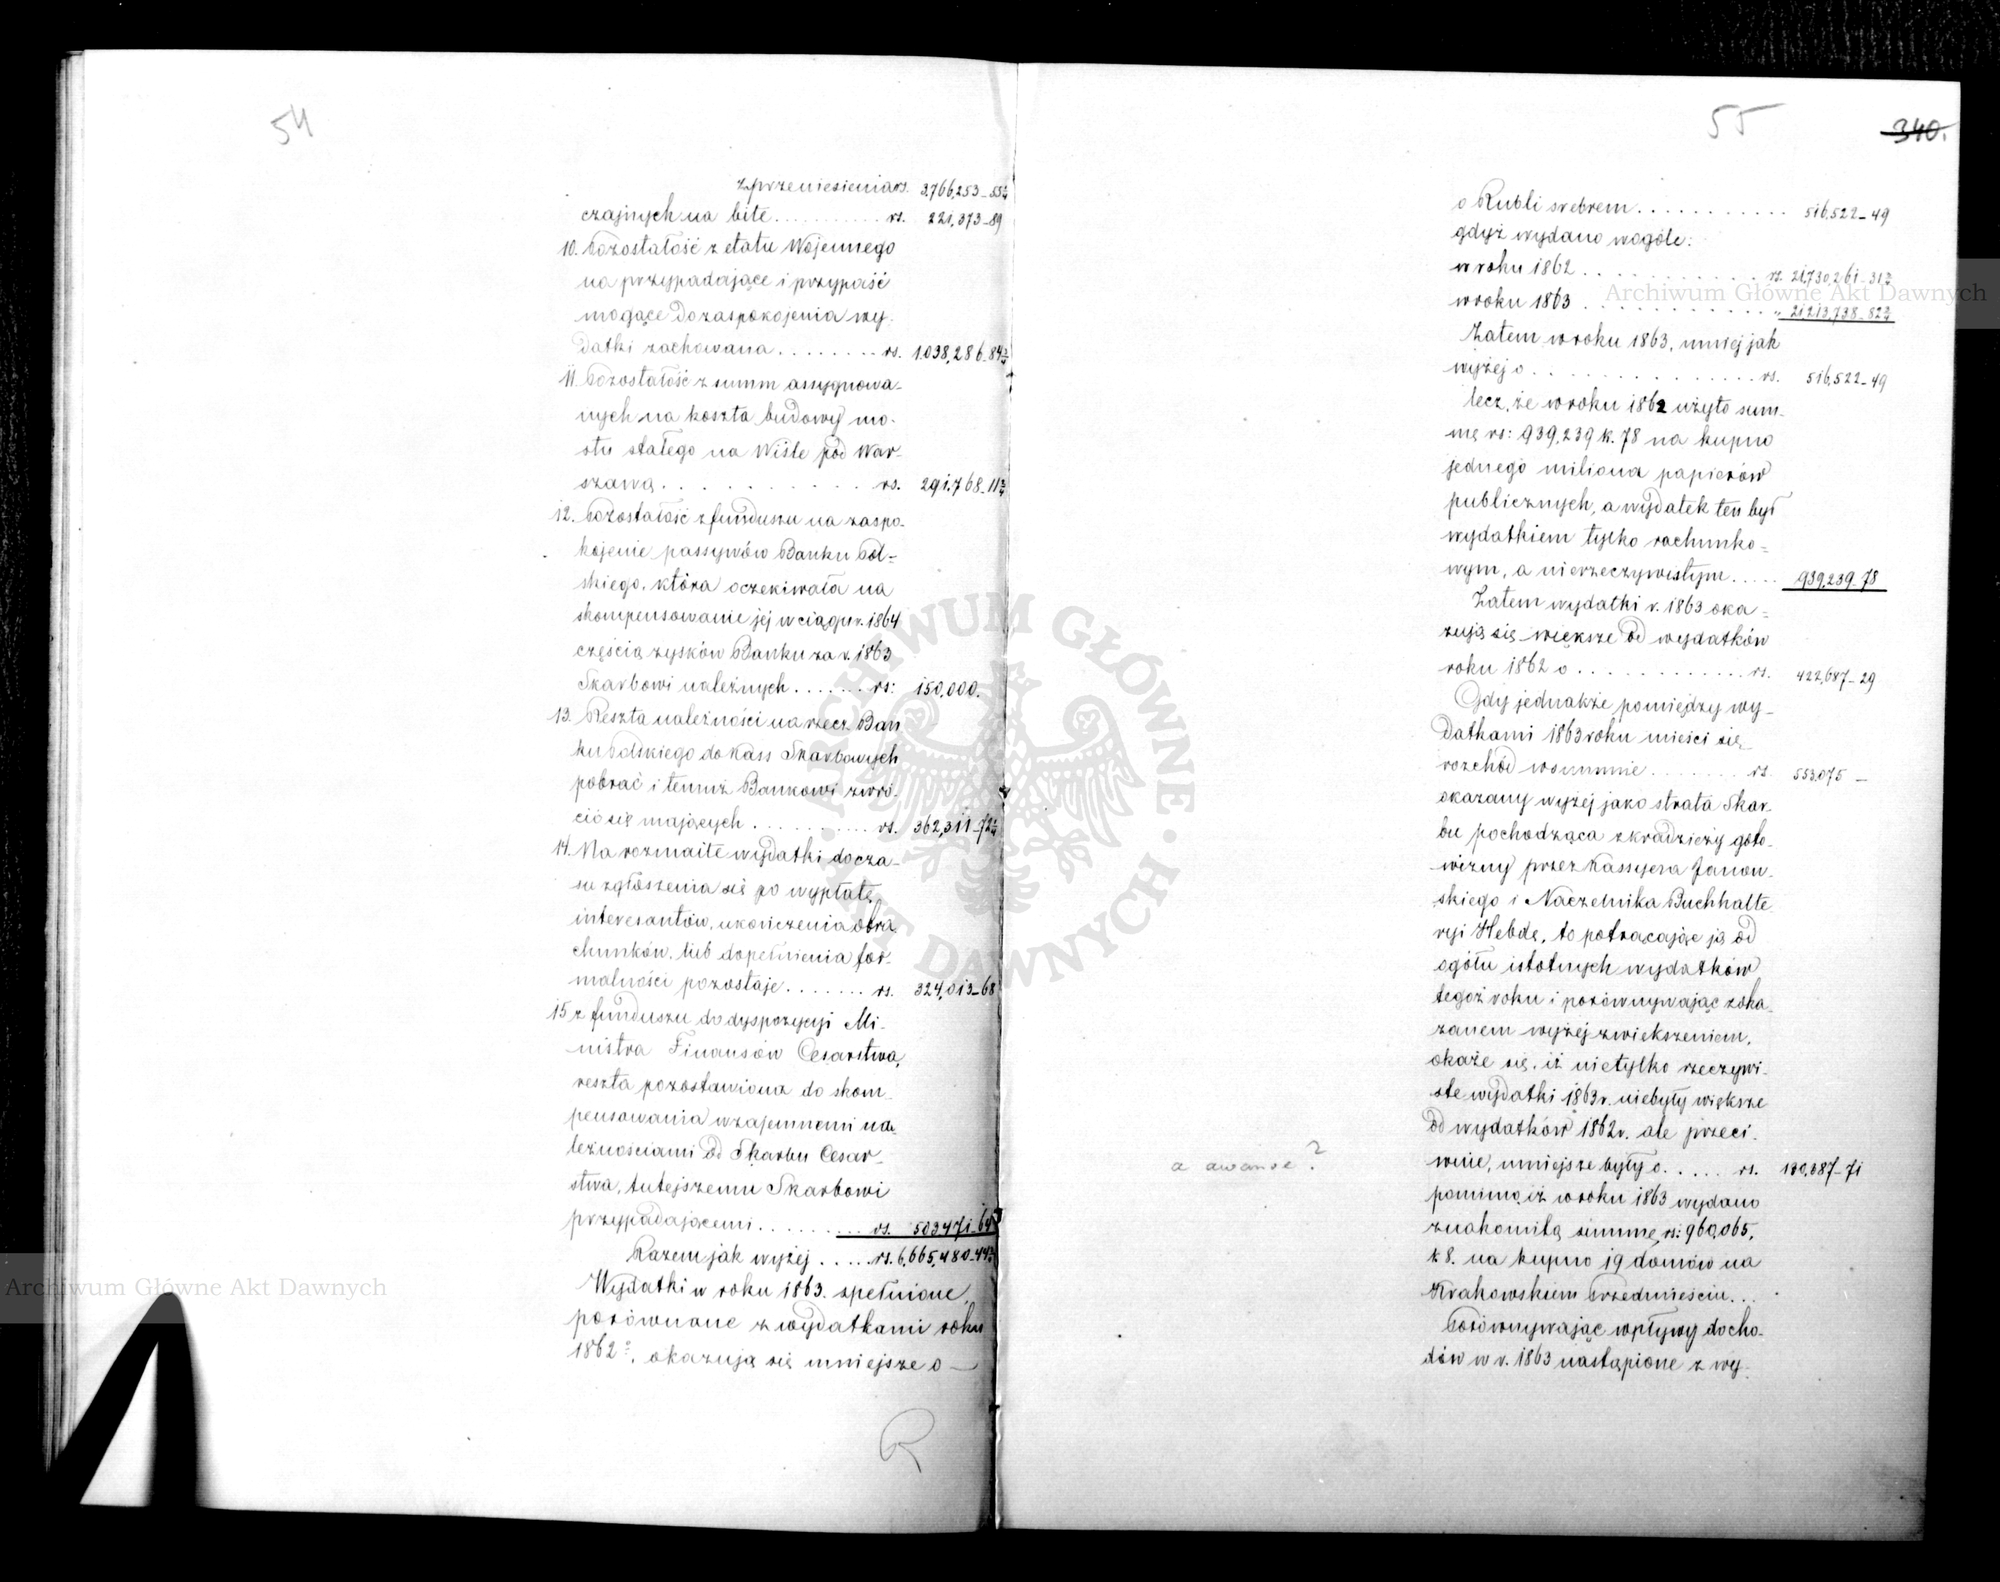 54
z przeniesienia rs. 3,766,253_55¾
czajnych na bite . . . . . . . . . . rs. 221,373_89
10. Pozostałość z etatu Wojennego
na przypadające i przypaść
mogące do zaspokojenia wy-
datki zachowana . . . . . . . . rs. 1.038,286_84¾
11. Pozostałość z summ assygnowa-
nych na koszta budowy mo-
stu stałego na Wiśle pod War-
szawą . . . . . . . . . . rs. 291.768_11¾
12. Pozostałość z funduszu na zaspo-
kojenie passywów Banku Pol-
skiego, która oczekiwała na
skompensowanie jej w ciągu r. 1864
częścią zysków Banku za r. 1863
Skarbowi należnych . . . . . . . rs: 150,000.
13. Reszta należności na rzecz Ban
ku Polskiego do Kass Skarbowych
pobrać i temuż Bankowi zwró-
cić się mających . . . . . . . . . . rs. 362,311_72¼
14. Na rozmaite wydatki do cza-
su zgłoszenia się po wypłatę
interesantów, ukończenia obra
chunków, lub dopełnienia for-
malności pozostaje . . . . . . . rs. 324,013_68
15 z funduszu do dyspozycyi Mi-
nistra Finansów Cesarstwa,
reszta pozostawiona do skom-
pensowania wzajemnemi na-
leżnościami od Skarbu Cesar-
stwa, tutejszemu Skarbowi
przypadającemi . . . . . . . . . . . rs. 503471_64
Razem jak wyżej . . . . rs. 6,665,480_44¾
Wydatki w roku 1863. spełnione,
porównane z wydatkami roku
1862º, okazują się mniejsze o —
R
55
340.
o Rubli srebrem . . . . . . . . . . . 516,522_49
gdyż wydano wogóle:
w roku 1862 . . . . . . . . . . . . rs. 21,730,261_31¾
w roku 1863 . . . . . . . . . . . . „ 21,213,738_82¾
Zatem w roku 1863, mniej jak
wyżej o . . . . . . . . . . . . . . rs. 516,522_49
lecz, że w roku 1862 użyto sum-
mę rs: 939,239 k. 78 na kupno
jednego miliona papierów
publicznych, a wydatek ten był
wydatkiem tylko rachunko-
wym, a nierzeczywistym . . . . . 939,239_78
Zatem wydatki r. 1863 oka-
zują się większe od wydatków
roku 1862 o . . . . . . . . . . . . rs. 422,687_29
Gdy jednakże pomiędzy wy-
datkami 1863 roku mieści się
rozchód w summie . . . . . . . . rs. 553,075 —
okazany wyżej jako strata Skar-
bu pochodząca z kradzieży goto-
wizny przez Kassyera Janow-
skiego i Naczelnika Buchhalte
ryi Hebdę, to potrącając ją od
ogółu istotnych wydatków
tegoż roku i porównywając z oka-
zanem wyżej zwiększeniem,
okaże się, iż nietylko rzeczywi-
ste wydatki 1863 r. niebyły większe
od wydatków 1862 r. ale przeci-
wnie, mniejsze były o . . . . . rs. 130,387_71
a awanse?
pomimo, iż w roku 1863 wydano
znakomitą summę rs: 960,065,
k 8. na kupno 19 domów na
Krakowskiem Przedmieściu . . .
Porównywając wpływy docho-
dów w r. 1863 nastąpione z wy-
Archiwum Główne Akt Dawnych
Archiwum Główne Akt Dawnych
ARCHIWUM GŁÓWNE · AKT DAWNYCH ·